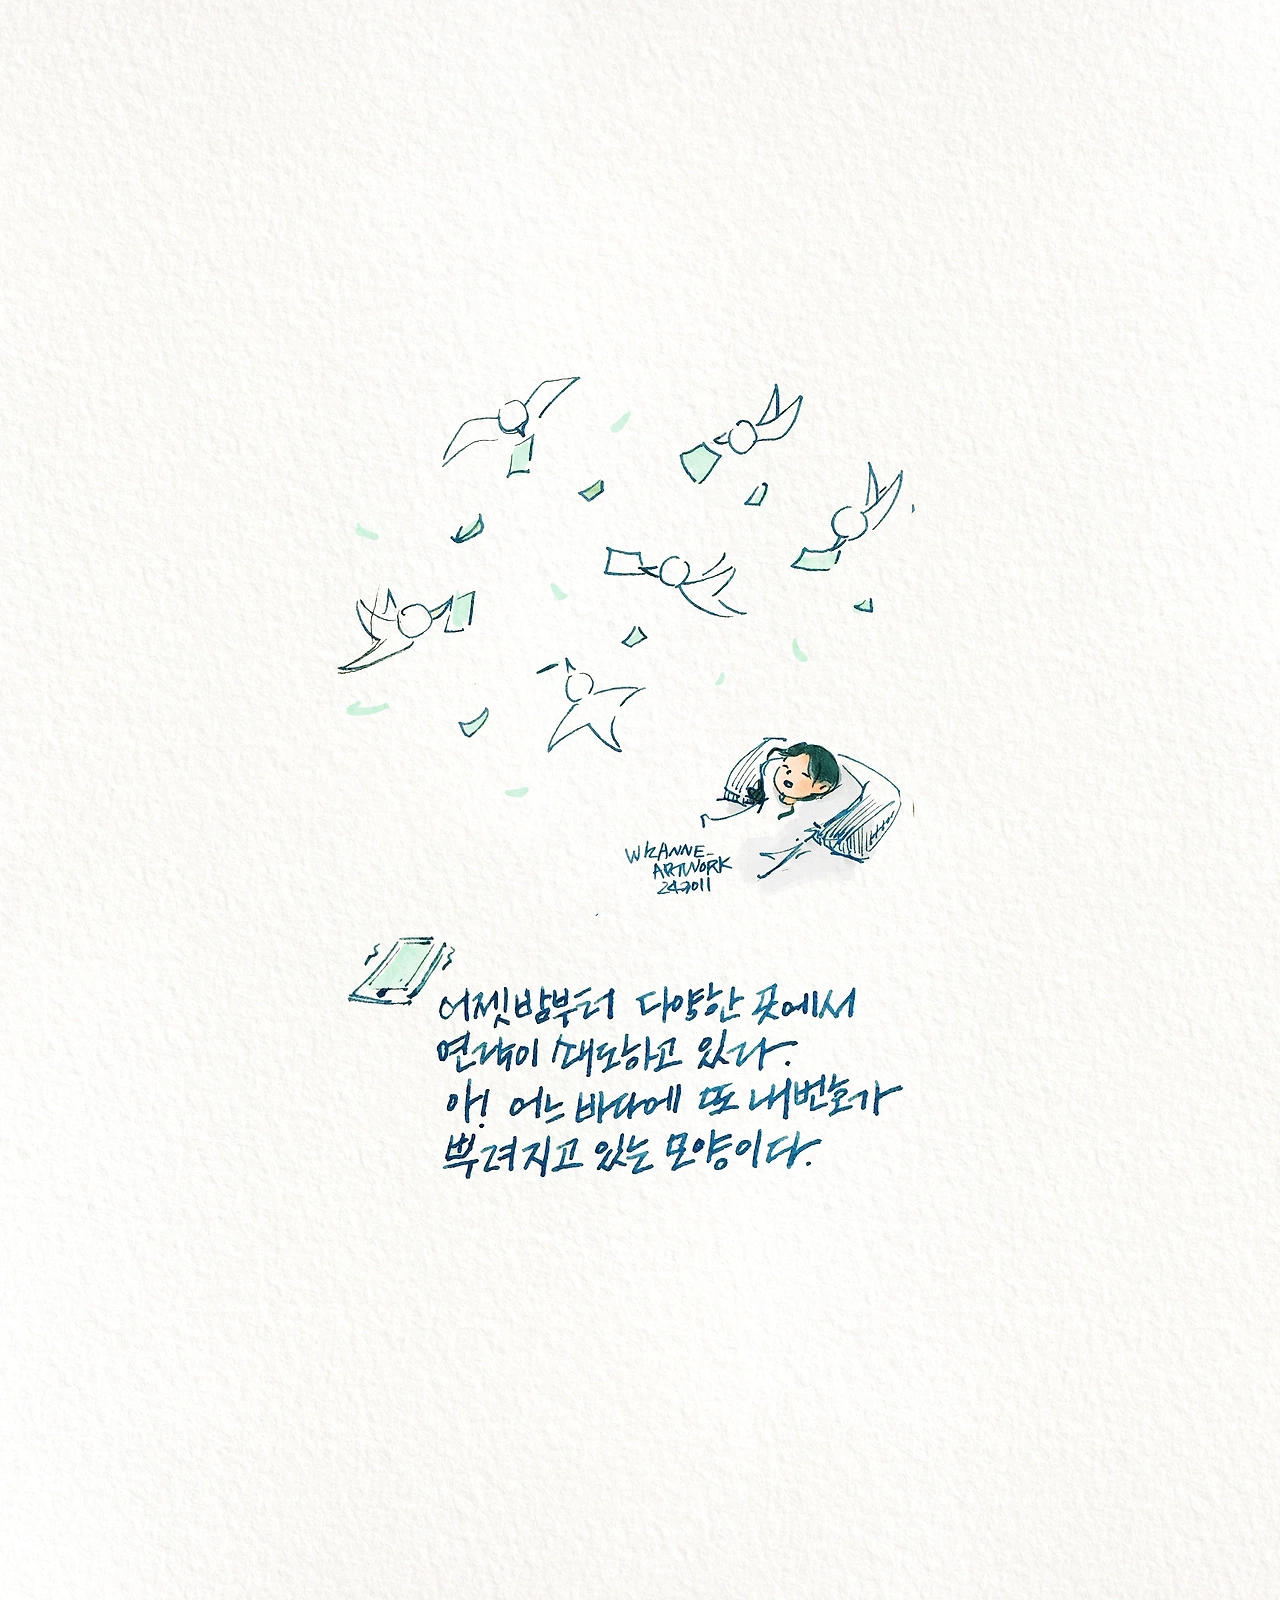 WIZANNE_
ARTWORK
243011
어젯밤부터 다양한 곳에서
연락이 쇄도하고 있다.
아! 어느 바다에 또 내번호가
뿌려지고 있는 모양이다.